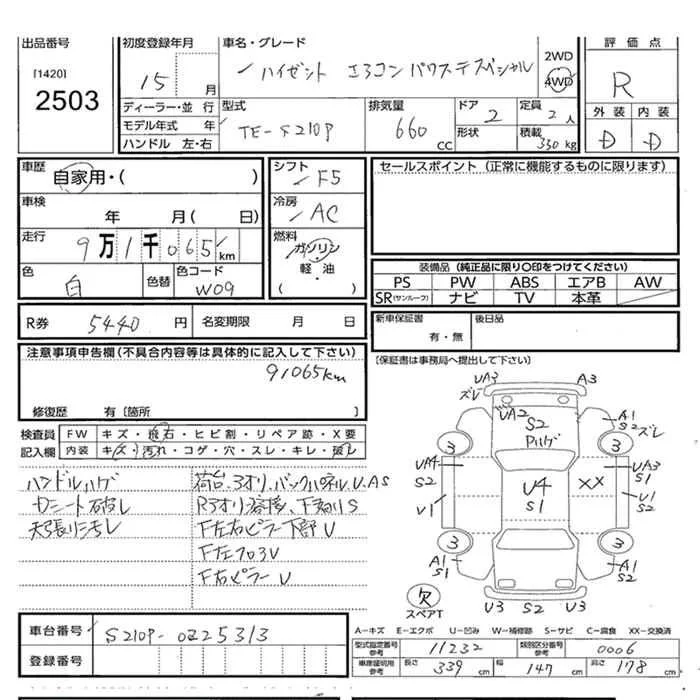 出品番号
[1420]
2503
初度登録年月
15 月
ディーラー・並 行
モデル年式 年
ハンドル 左・右
車名・グレード
ハイゼット エアコン パワステ スペシャル
2WD
4WD
型式
TE-S210P
排気量
660 CC
ドア 2
形状
定員 2 人
積載 350 kg
評価点
R
外装 内装
D D
車歴
自家用・(
車検
年 月( 日)
走行
9万1千065 km
色
白
色替
色コード
W09
シフト
F5
冷房
AC
燃料
ガソリン
軽・油
( )
セールスポイント(正常に機能するものに限ります)
装備品(純正品に限り○印をつけてください)
PS PW ABS エアB AW
SR(サンルーフ) ナビ TV 本革
R券 5440 円 名変期限 月 日
新車保証書
有・無
後日品
(保証書は事務局へ提出して下さい)
注意事項申告欄(不具合内容等は具体的に記入して下さい)
91065km
修復歴 有〔箇所 〕
検査員
記入欄
FW キズ・飛石・ヒビ割・リペア跡・X要
内装 キズ・汚れ・コゲ・穴・スレ・キレ・破レ
ハンドルハゲ
Dシート破レ
天張リシミレ
荷台、3オリ、バックパネルU、AS
R3オリ溶接、下廻りS
F左右ピラー下部U
F左フロアU
F右ピラーU
UA3
ズレ
A3
UA2
S2
Pハゲ
A1
S2
ズレ
3
3
UA4
S2
U4
S1
XX
UA3
S1
U1
U1
S2
3
3
A1
S1
A1
S2
欠
スペアT
U3 S2 U3
A-キズ E-エクボ U-凹み W-補修跡 S-サビ C-腐食 XX-交換済
車台番号
S210P-0225313
登録番号
型式指定番号
参考
11232
類別区分番号
参考
0006
車庫証明用
参考
長さ 339 cm 幅 147 cm 高さ 178 cm